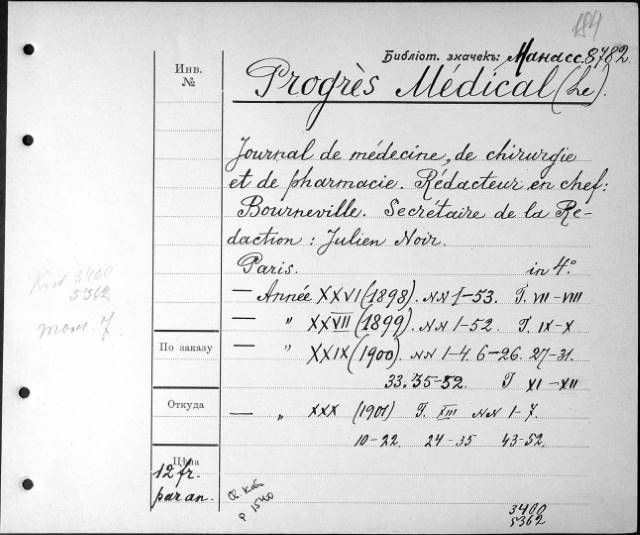 184
Библіот. значекъ: Манасс. 8782.
Инв.
№
Progrès Médical (Le).
Journal de médecine, de chirurgie
et de pharmacie. Rédacteur en chef:
Bourneville. Secrétaire de la Ré-
daction: Julien Noir.
Paris. in 4°.
— Année XXVI (1898). NN 1-53. T. VII-VIII
— " XXVII (1899). NN 1-52. T. IX-X
— " XXIX (1900). NN 1-4. 6-26. 27-31.
33. 35-52. T XI-XII
— " XXX (1901) T. XIII NN 1-7.
10-22. 24-35 43-52.
3400
5362
7
По заказу
Откуда
Цѣна
12 fr.
par an.
р 1540
3400
5362